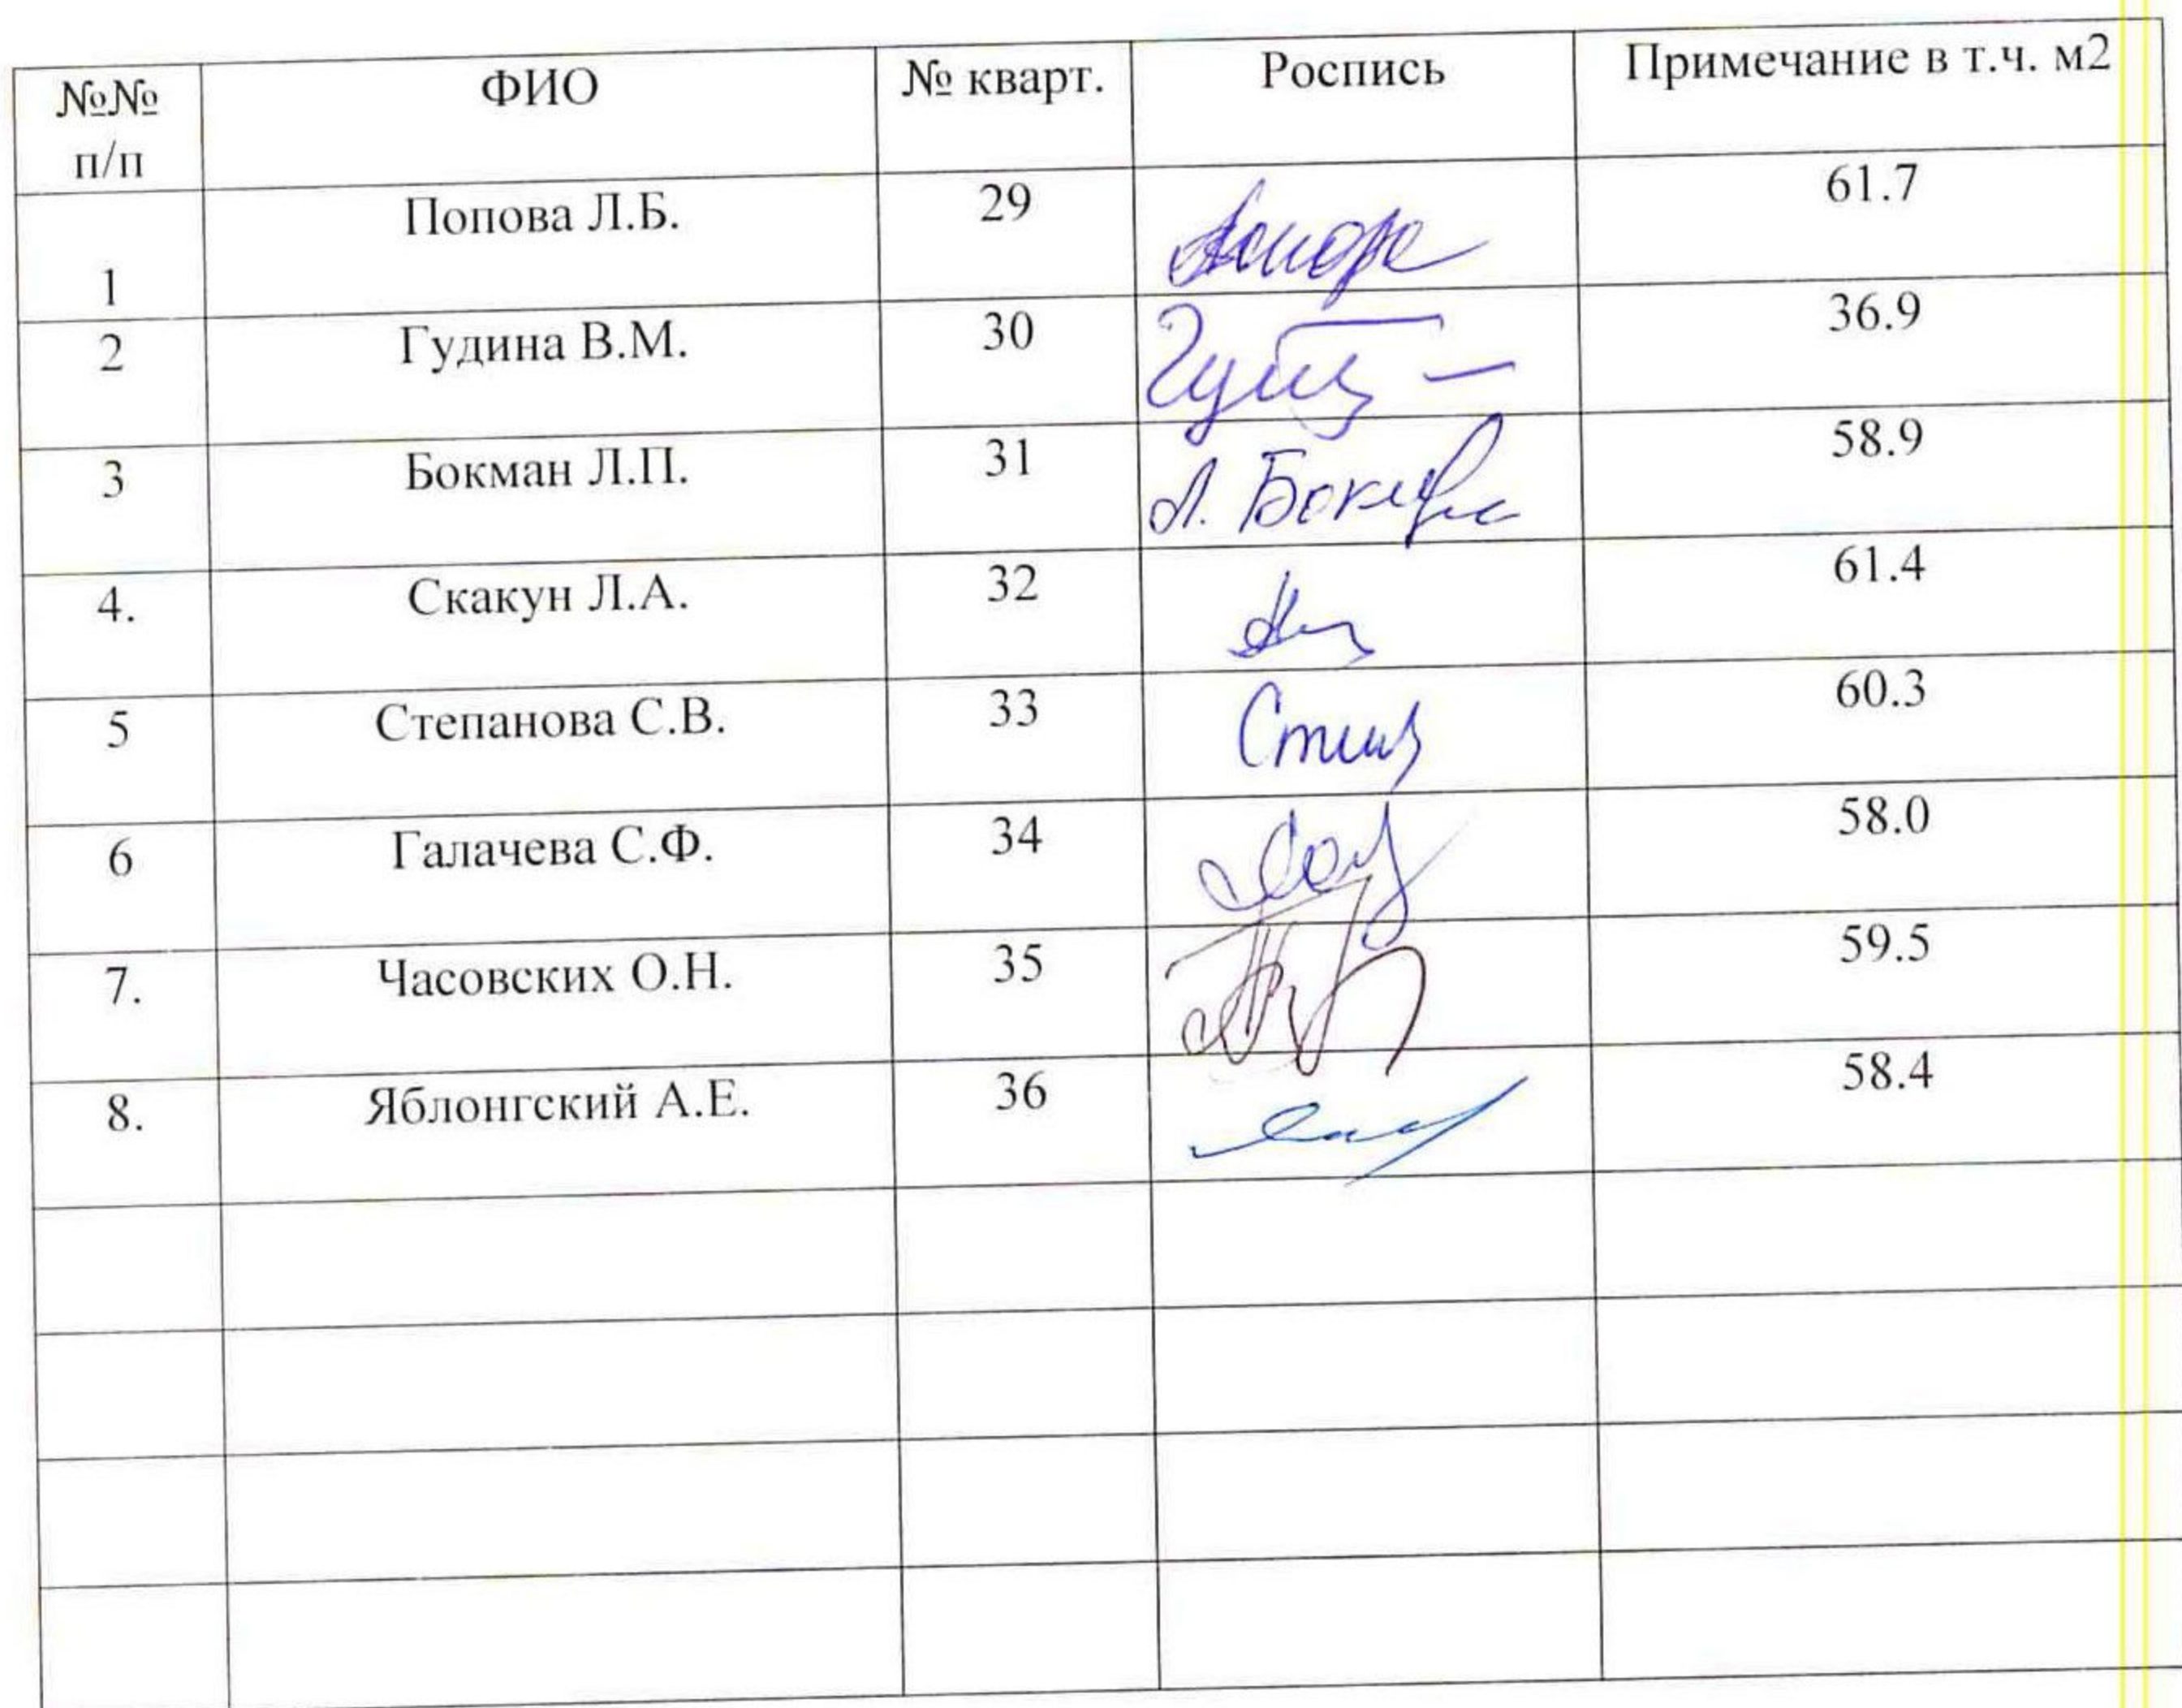 №№ ФИО № кварт. Роспись Примечание в т.ч. м2
п/п
1 Попова Л.Б. 29 61.7
2 Гудина В.М. 30 36.9
3 Бокман Л.П. 31 Л. Бокман 58.9
4. Скакун Л.А. 32 61.4
5 Степанова С.В. 33 60.3
6 Галачева С.Ф. 34 58.0
7. Часовских О.Н. 35 59.5
8. Яблонгский А.Е. 36 58.4